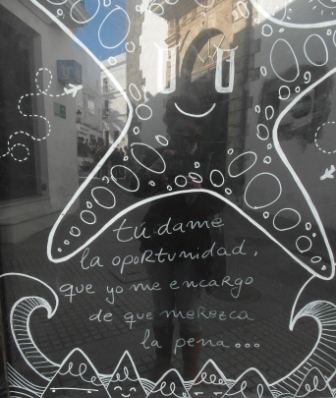 tu dame
la opoRtunidad,
que yo me encaRgo
de que meRezca
la pena...